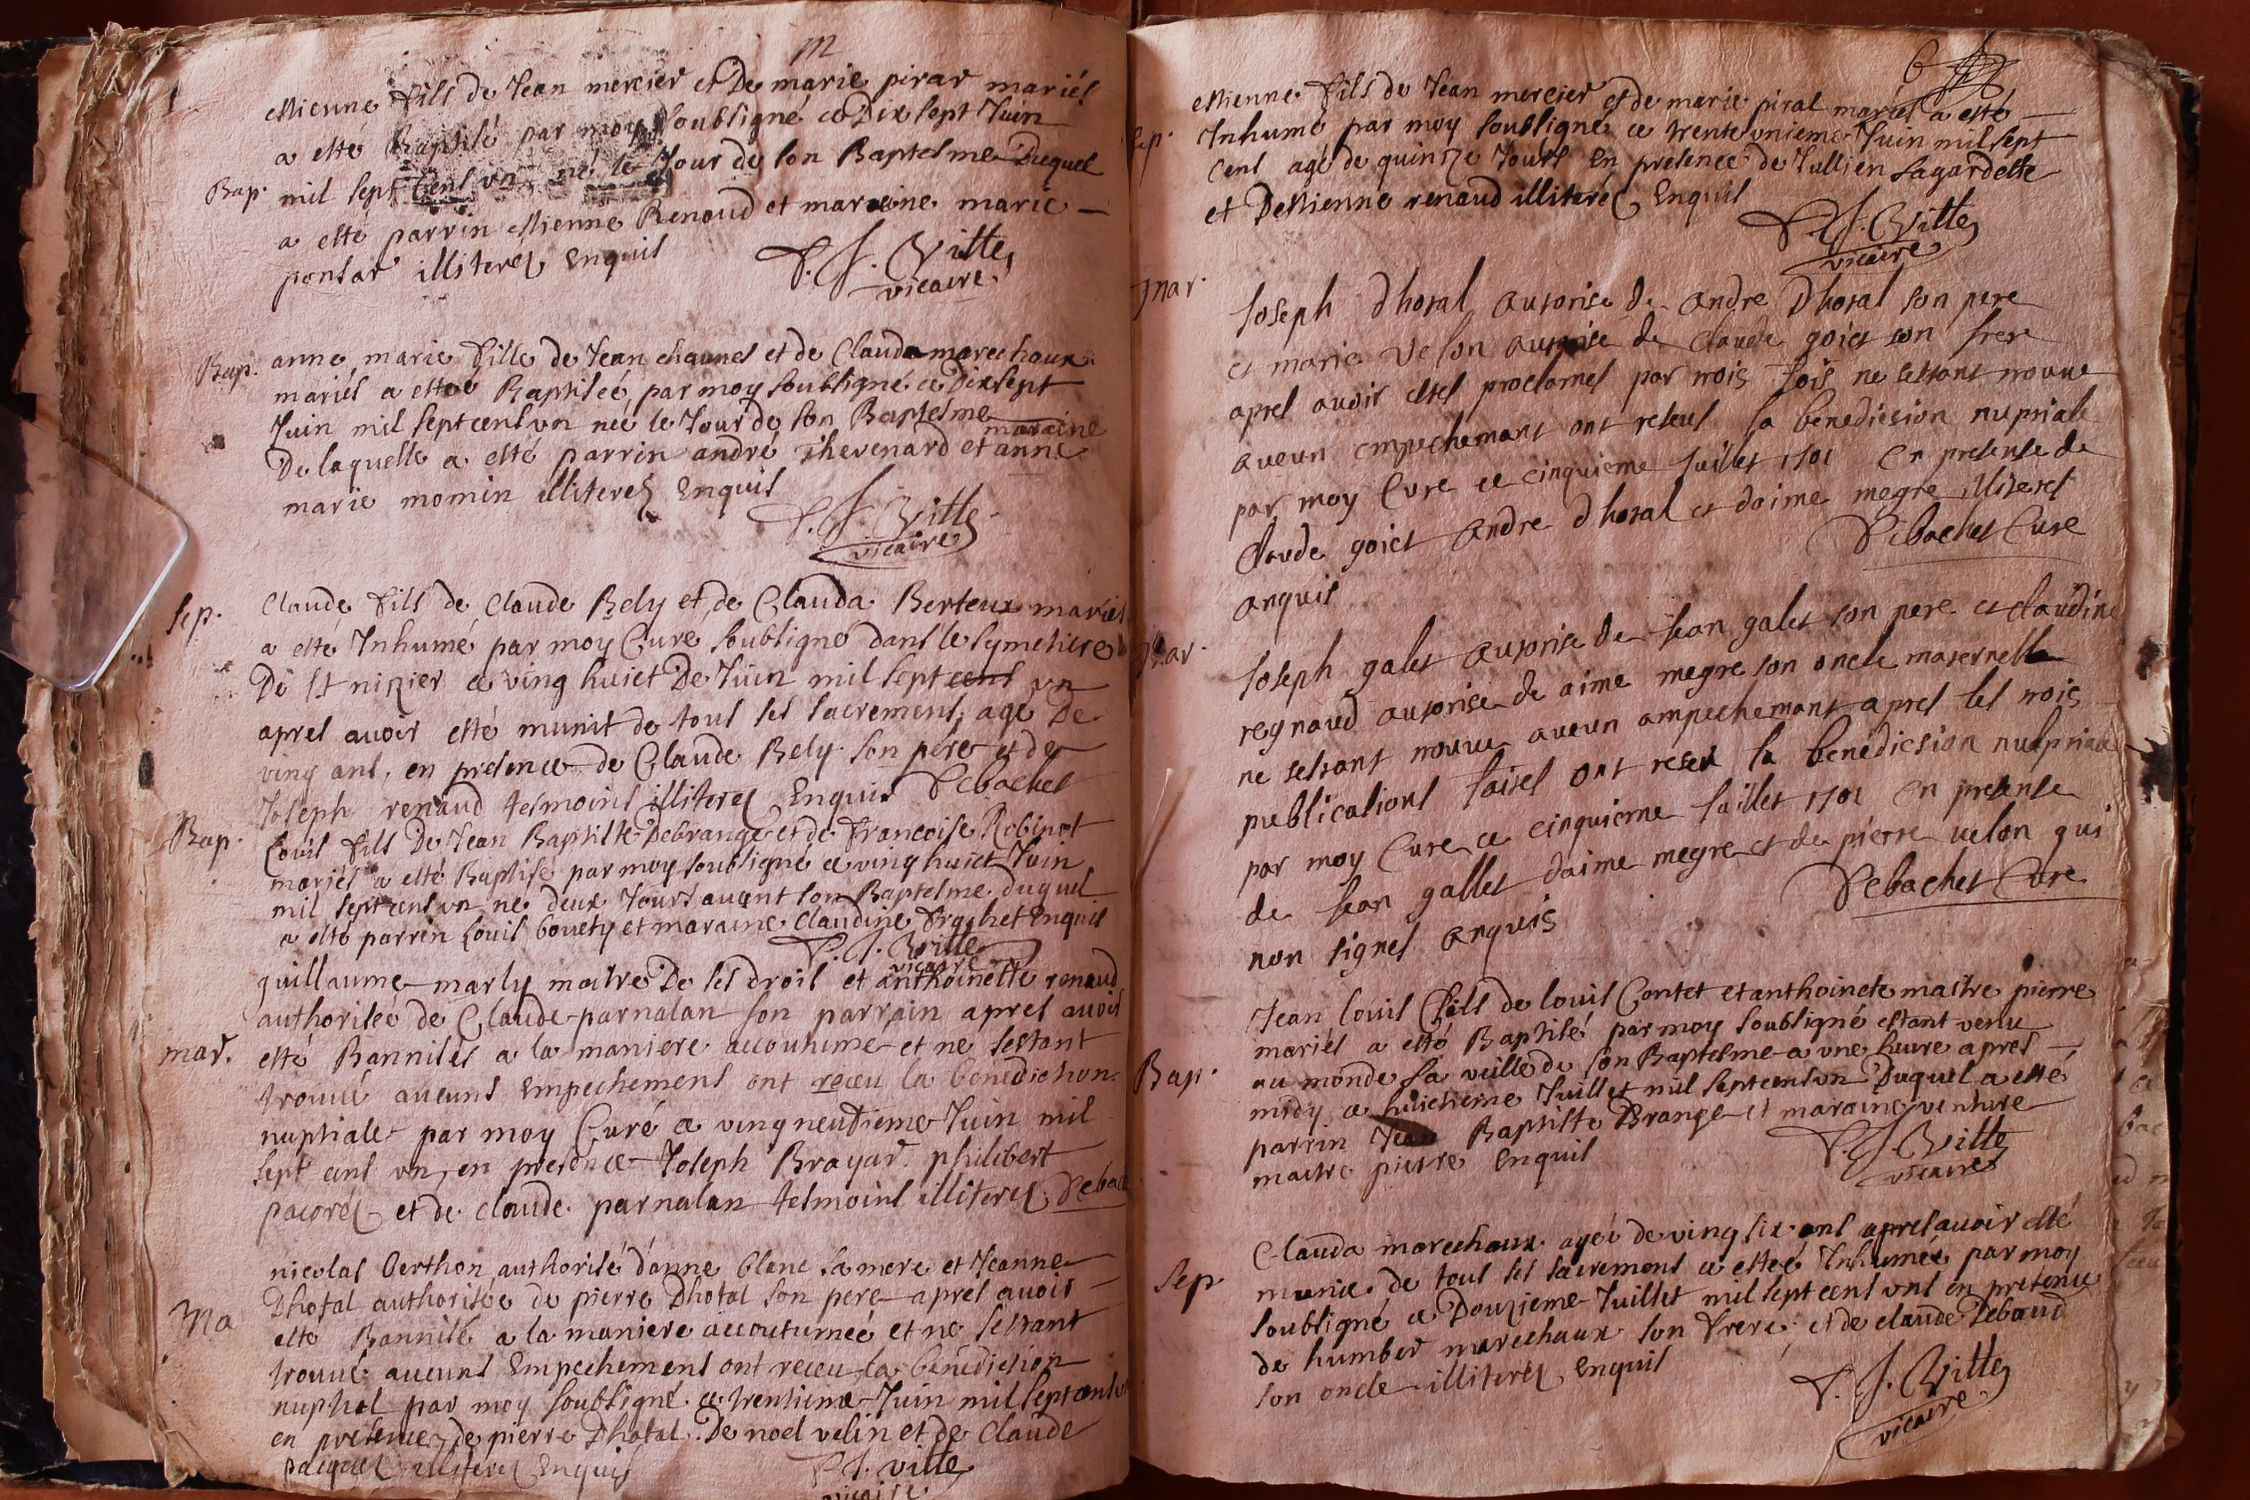 m
estienne fils de Jean mercier et De marie pirar mariés
a esté Baptisé par moy soubsigné ce Dix sept Juin
Bap. mil sept cens un né le Jour de son Baptesme Duquel
a esté parrin estienne Renaud et maraine marie
ponsar illiterez Enquis
P. J. Ville
vicaire
Bap. anne marie fille de Jean chaunel et de Clauda marechaux
mariés a estée Baptisée par moy soubsigné ce Dixsept
Juin mil sept cens un née le Jour de son Baptesme
De laquelle a esté parrin andré Thevenard et maraine anne
marie momin illiterez Enquis
P. J. Ville
vicaire
Sep. Claude fils de Claude Bely et de Clauda Berteux mariés
a esté Inhumé par moy Curé soubsigné dans le symetiere
De St nizier ce ving huict De Juin mil sept cens un
apres avoir esté munit de tous ses sacremens age De
ving ans, en presence de Claude Bely son pére et de
Joseph renaud tesmoins illiterez Enquis Debachet
Bap. Louis fils De Jean Baptiste Debrange et de francoise Robinet
mariés a esté Baptisé par moy soubsigné ce ving huict Juin
mil sept cens un ne deux Jours avant son Baptesme duquel
a esté parrin Louis bouety et maraine Claudine Brachet Enquis
P. J. Ville
vicaire
guillaume marly maitre De ses drois et anthoinette renaud
authorisée de Claude parnalan son parrain apres avois
mar. esté Bannisés a la maniere accoutume et ne sestant
trouvé aucuns Empechemens ont receu la benediction
nuptiale par moy Curé ce ving neufieme Juin mil
sept cens un, en presence Joseph Brayar philibert
pacorez et de claude parnalan tesmoins illiterez Debach
nicolas Berthon authorisé danne blanc sa mere et Jeanne
Dhotal authorisée de pierre Dhotal son pere apres avois
Ma esté Bannisé a la maniere accoutumeé et ne sestant
trouvé aucuns Empechemens ont receu la benediction
nuphal par moy soubsigné ce trentieme Juin mil sept cens un
en présence de pierre Dhotal De noel velin et de Claude
pacquez illiterez Enquis
P. J. ville
vicaire
6
estienne fils de Jean mercier et de marie pirat mariés a esté
Sep. Inhumé par moy soubsigné ce trente unieme Juin mil sept
cens agé de quinze Jours En presence de Jullien Lagardette
et Destienne renaud illiterez Enquis
P. J. Ville
vicaire
mar. Joseph Dhotal autorise de andre Dhotal son pere
et marie velon autorisé de claude goiet son frere
apres avoir estes proclames par trois fois ne sestant trouve
aucun empechemant ont reseus la benediction nuptiale
par moy Cure ce cinquieme Juillet 1701 en presense de
Claude goiet andre dhotal et daime megre illiteres
anquis Debachet Cure
Mar. Joseph galet autorise de Jean galet son pere et claudine
regnaud autorise de aime megre son oncle maternelle
ne sestant trouve aucun ampechemant apres les trois
publications faites ont reseu la benediction nutpriale
par moy Cure ce cinquieme Juillet 1701 en presense
de Jean gallet daime megre et de pierre velon qui
non signes anquis Debachet Cure
Jean louis fils de louis Contet et anthoinete maitre pierre
mariés a esté Baptisé par moy soubsigné estant venu
au monde sa veille de son Baptesme a une heure apres
Bap. midy ce huictieme Juillet mil sept cens un Duquel a esté
parrin Jean Baptiste Brange et maraine venture
maitre pierre Enquis
P. J. Ville
vicaire
Clauda marechaux agée de ving six ans apres avoir esté
Sep munie de tous ses sacremens a esteé Inhumée par moy
soubsigné ce Douzieme Juillet mil sept cens uns en presence
de humber marechaux son frere et de claude Debaud
son oncle illiterez Enquis
P. J. Ville
vicaire